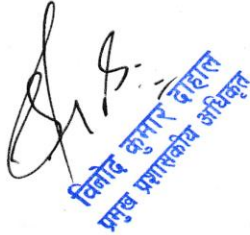 विनोद कुमार दाहाल
प्रमुख प्रशासकीय अधिकृत